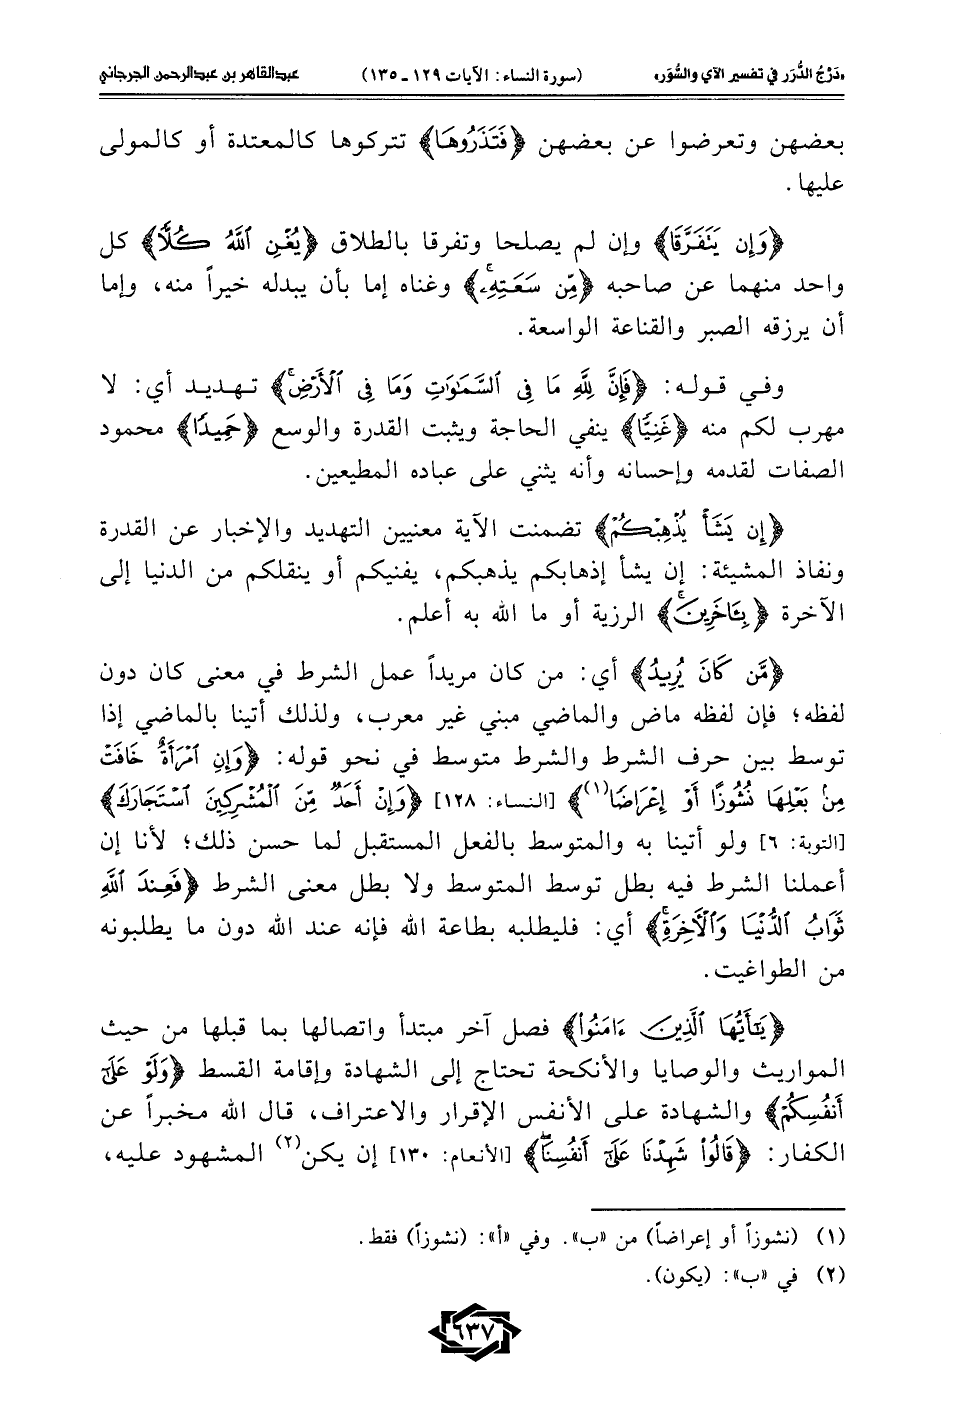 «دَرْجُ الدُّرَر في تفسير الآي والسُّوَر»
(سورة النساء: الآيات ١٢٩ ـ ١٣٥)
عبدالقاهر بن عبدالرحمن الجرجاني
بعضهن وتعرضوا عن بعضهن ﴿فَتَذَرُوهَا﴾ تتركوها كالمعتدة أو كالمولى
عليها.
﴿وَإِن يَتَفَرَّقَا﴾ وإن لم يصلحا وتفرقا بالطلاق ﴿يُغْنِ ٱللَّهُ كُلًّا﴾ كل
واحد منهما عن صاحبه ﴿مِّن سَعَتِهِۦۚ﴾ وغناه إما بأن يبدله خيراً منه، وإما
أن يرزقه الصبر والقناعة الواسعة.
وفي قوله: ﴿فَإِنَّ لِلَّهِ مَا فِى ٱلسَّمَـٰوَٰتِ وَمَا فِى ٱلْأَرْضِۚ﴾ تهديد أي: لا
مهرب لكم منه ﴿غَنِيًّا﴾ ينفي الحاجة ويثبت القدرة والوسع ﴿حَمِيدًا﴾ محمود
الصفات لقدمه وإحسانه وأنه يثني على عباده المطيعين.
﴿إِن يَشَأْ يُذْهِبْكُمْ﴾ تضمنت الآية معنيين التهديد والإخبار عن القدرة
ونفاذ المشيئة: إن يشأ إذهابكم يذهبكم، يفنيكم أو ينقلكم من الدنيا إلى
الآخرة ﴿بِـَٔاخَرِينَۚ﴾ الرزية أو ما الله به أعلم.
﴿مَّن كَانَ يُرِيدُ﴾ أي: من كان مريداً عمل الشرط في معنى كان دون
لفظه؛ فإن لفظه ماض والماضي مبني غير معرب، ولذلك أتينا بالماضي إذا
توسط بين حرف الشرط والشرط متوسط في نحو قوله: ﴿وَإِنِ ٱمْرَأَةٌ خَافَتْ
مِنۢ بَعْلِهَا نُشُوزًا أَوْ إِعْرَاضًا(١)﴾ [النساء: ١٢٨] ﴿وَإِنْ أَحَدٌ مِّنَ ٱلْمُشْرِكِينَ ٱسْتَجَارَكَ﴾
[التوبة: ٦] ولو أتينا به والمتوسط بالفعل المستقبل لما حسن ذلك؛ لأنا إن
أعملنا الشرط فيه بطل توسط المتوسط ولا بطل معنى الشرط ﴿فَعِندَ ٱللَّهِ
ثَوَابُ ٱلدُّنْيَا وَٱلْـَٔاخِرَةِۚ﴾ أي: فليطلبه بطاعة الله فإنه عند الله دون ما يطلبونه
من الطواغيت.
﴿يَـٰٓأَيُّهَا ٱلَّذِينَ ءَامَنُوا۟﴾ فصل آخر مبتدأ واتصالها بما قبلها من حيث
المواريث والوصايا والأنكحة تحتاج إلى الشهادة وإقامة القسط ﴿وَلَوْ عَلَىٰٓ
أَنفُسِكُمْ﴾ والشهادة على الأنفس الإقرار والاعتراف، قال الله مخبراً عن
الكفار: ﴿قَالُوا۟ شَهِدْنَا عَلَىٰٓ أَنفُسِنَاۖ﴾ [الأنعام: ١٣٠] إن يكن(٢) المشهود عليه،
(١) (نشوزاً أو إعراضاً) من «ب». وفي «أ»: (نشوزاً) فقط.
(٢) في «ب»: (يكون).
٦٣٧